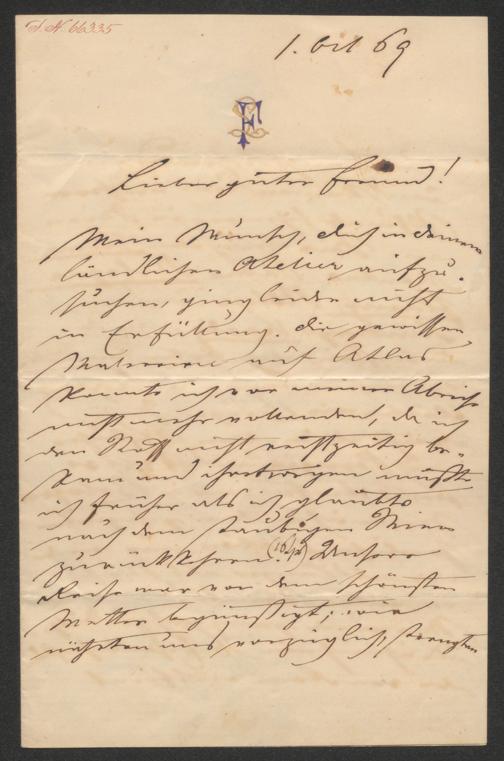 I. N. 66335
1. Oct 69
FS
Lieber guter Freund!
Mein Wunsch, dich in deinem
ländlichen Atelier aufzu-
suchen, ging leider nicht
in Erfüllung. Die gewissen
Malereien auf Atlas
konnte ich vor meiner Abreise
nicht mehr vollenden, da ich
den Stoff nicht rechtzeitig be-
kam und ihretwegen mußte
ich früher als ich glaubte
nach dem staubigen Wien
zurückkehren. Unsere
Reise war von dem schönsten
Wetter begünstigt; wir
nährten uns vorzüglich,